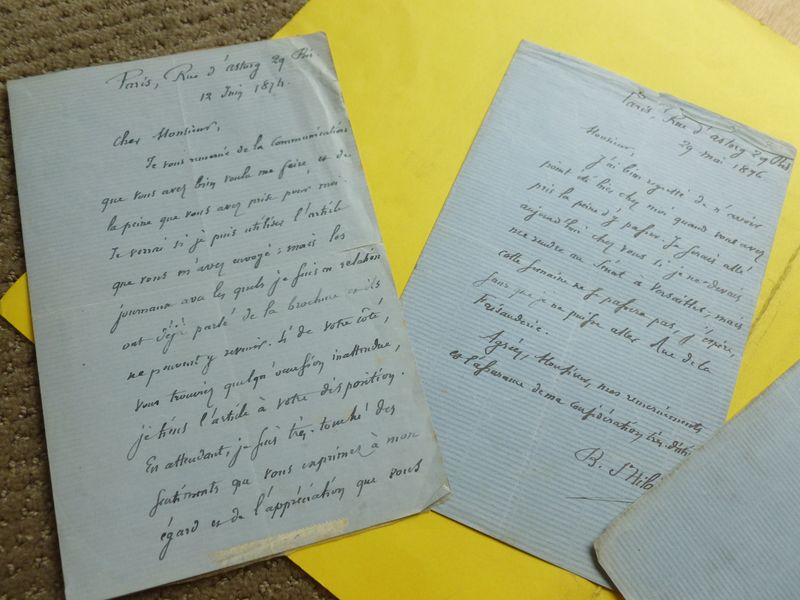 Paris, Rue d'astorg 29 bis.
12 Juin 1874.
Cher Monsieur,
Je vous remercie de la Communication
que vous avez bien voulu me faire, et de
la peine que vous avez prise pour moi.
Je verrai si je puis utiliser l'article
que vous m'avez envoyé : mais les
journaux avec les quels je suis en relation
ont déjà parlé de la brochure et ils
ne peuvent y revenir. Si de votre côté,
vous trouviez quelqu'occasion inattendue,
je tiens l'article à votre disposition.
En attendant, je suis très touché des
sentiments que vous exprimez à mon
égard et de l'appréciation que vous
Paris, Rue d'astorg 29 bis
29 mai 1876.
Monsieur,
J'ai bien regretté de n'avoir
point été hier chez moi quand vous avez
pris la peine d'y passer. Je serais allé
aujourd'hui chez vous si je ne devais
me rendre au Sénat à Versailles ; mais
cette semaine ne se passera pas, j'espère,
sans que je ne puisse aller Rue de la
Faisanderie.
Agréez, Monsieur, mes remerciements
et l'assurance de ma considération très disti
B. St Hil